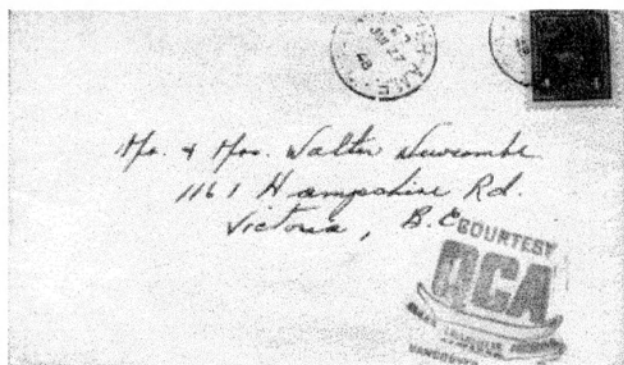 JUN 27
48
Mr. & Mrs. Walter Newcombe
1161 Hampshire Rd.
Victoria, B.C.
COURTESY
QCA
VANCOUVER